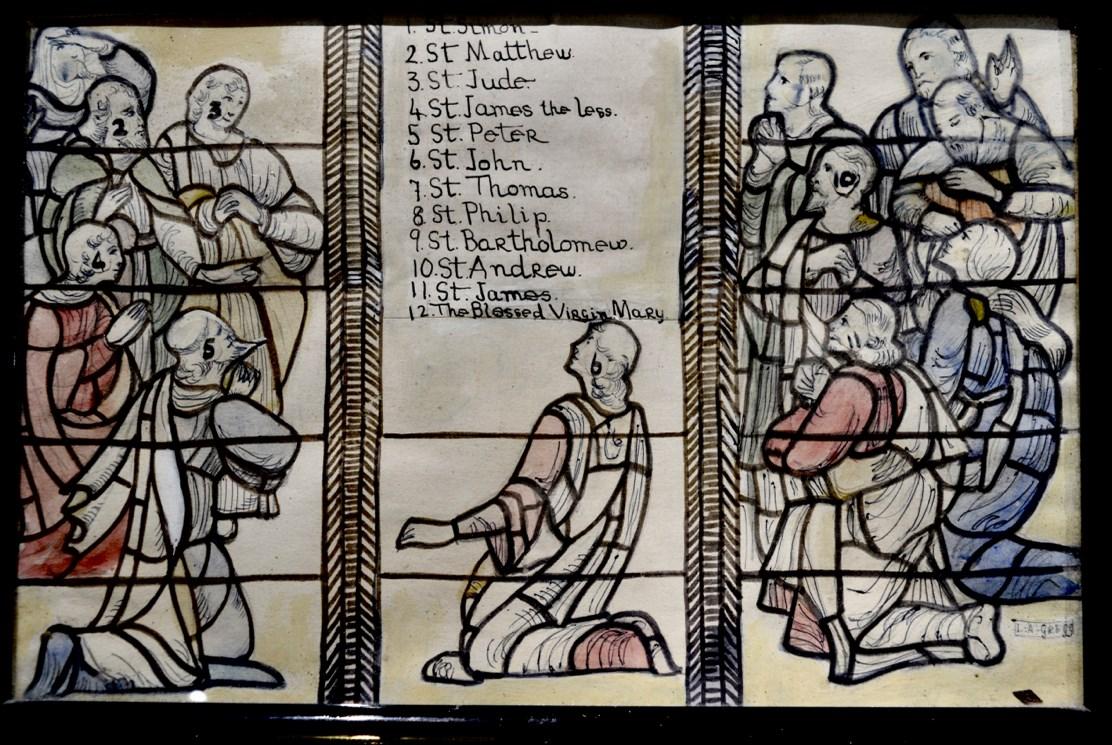 1. St. Simon
2. St Matthew.
3. St. Jude.
4. St. James the less.
5 St. Peter
6. St. John.
7. St. Thomas.
8. St. Philip.
9. St. Bartholomew.
10. St Andrew.
11. St. James.
12. The Blessed Virgin Mary
3
2
4
5
6
9